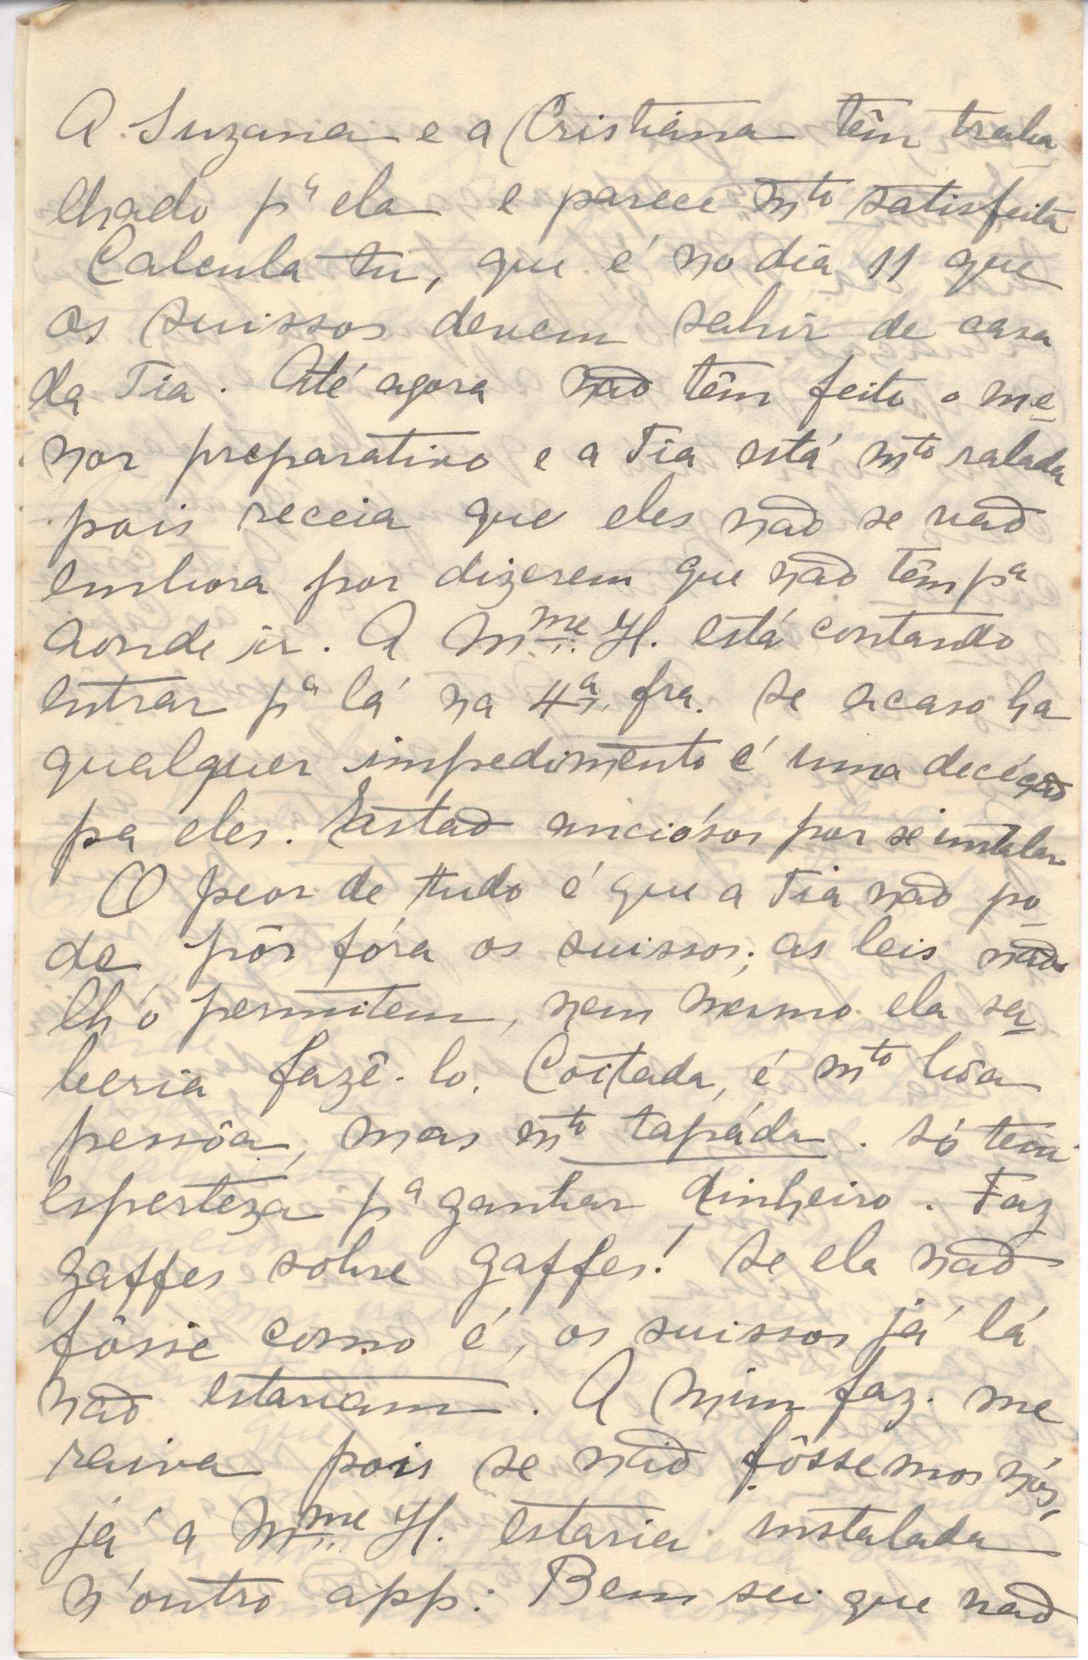 A Suzana e a Cristiana têm traba
lhado pª ela e parece mto satisfeita
Calcula tu, que é no dia 11 que
os suissos devem sahir de casa
da Tia. Até agora não têm feito o me
nor preparativo e a Tia está mto ralada
pois receia que eles não se vão
embora por dizerem que não têm pª
aonde ir. A Mme H. está contando
entrar pª lá na 4ª fra. Se acaso ha
qualquer impedimento é uma deceção
pa eles. Estão anciósos por se instalar
O peor de tudo é que a Tia não po
de pôr fóra os suissos; as leis não
lh'o permitem, nem mesmo ela sa
beria fazê-lo. Coitada, é mto bôa
pessôa, mas mto tapáda. Só tem
esperteza pª ganhar dinheiro. Faz
gaffes sobre gaffes! Se ela não
fôsse como é, os suissos já lá
não estariam. A mim faz-me
raiva pois se não fôssemos nós,
já a Mme H. estaria instalada
n'outro app: Bem sei que não